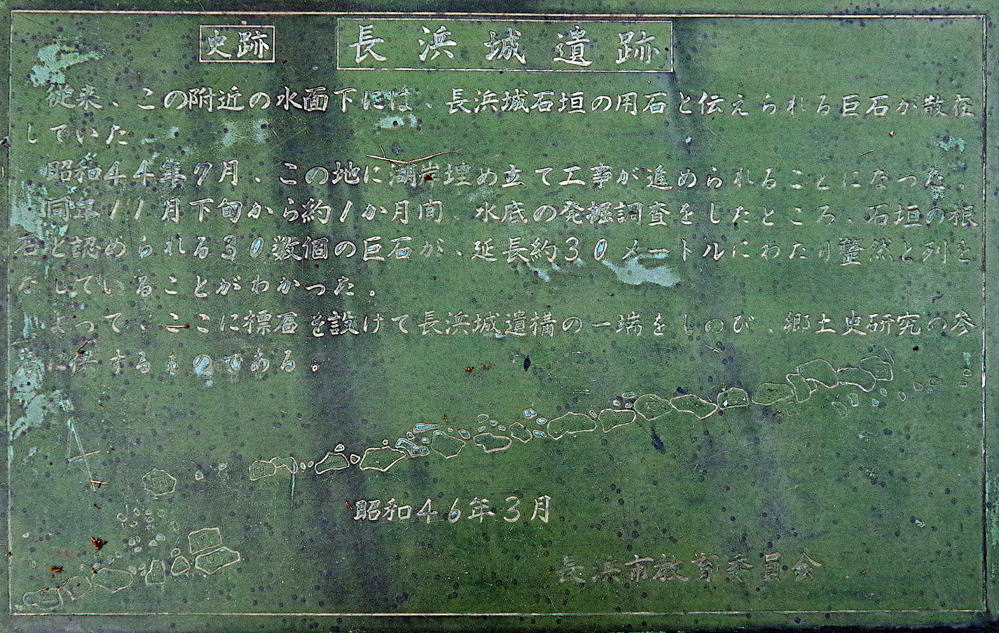 史跡 長浜城遺跡
従来、この附近の水面下には、長浜城石垣の用石と伝えられる巨石が散在
していた
昭和44年7月、この地に湖岸埋め立て工事が進められることになった。
同年11月下旬から約1か月間、水底の発掘調査をしたところ、石垣の根
石と認められる30数個の巨石が、延長約30メートルにわたり整然と列を
なしていることがわかった。
よって、ここに標石を設けて長浜城遺構の一端をしのび、郷土史研究の参
に供するものである。
昭和46年3月
長浜市教育委員会